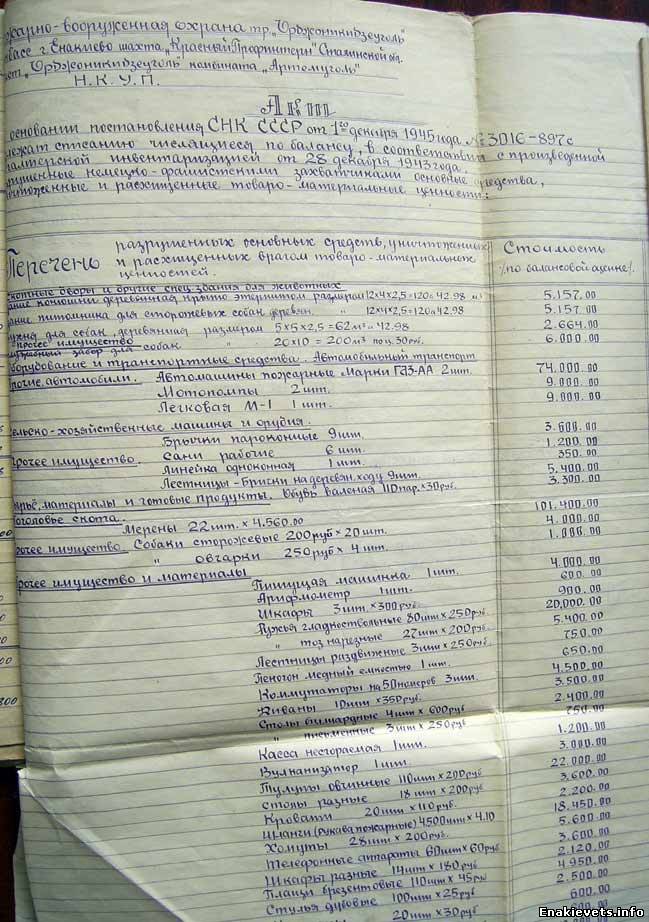 жарно-вооруженная охрана тр. "Орджоникидзеуголь"
басс г. Енакиево шахта "Красный Профинтерн" Сталинской обл.
ест "Орджоникидзеуголь" комбината "Артемуголь"
Н.К.У.П.
Акт
основании постановления СНК СССР от 1го декабря 1945 года № 3016-897с
лежат списанию числящиеся по балансу, в соответствии с произведенной
алтерской инвентаризацией от 28 декабря 1943 года,
рушенные немецко-фашистскими захватчиками основные средства,
чтоженные и расхищенные товаро-материальные ценности:
Перечень разрушенных основных средств, уничтоженных
и расхищенных врагом товаро-материальных
ценностей.
Стоимость
/по балансовой оценке/.
котные дворы и другие спец. здания для животных
ание конюшни деревянная крыто этернитом размером 12х4х2,5=120 а 42.98 5.157.00
ание питомника для сторожевых собак деревян. " 12х4х2,5=120 а 42.98 5.157.00
ухня для собак, деревянная размером 5х5х2,5=62м³ а 42.98 2.664.00
прочее имущество
забор для собак " 20х10=200м³ по ц. 30 руб. 6.000.00
борудование и транспортные средства. Автомобильный транспорт
рочие автомобили. Автомашины пожарные Марки ГАЗ-АА 2 шт. 74.000.00
Мотопомпы 2 шт. 9.000.00
Легковая М-1 1 шт. 9.000.00
ельско-хозяйственные машины и орудия.
Брычки пароконные 9 шт. 3.600.00
рочее имущество. Сани рабочие 6 шт. 1.200.00
Линейка одноконная 1 шт. 350.00
Лестницы-Брички на деревян. ходу 9 шт. 5.400.00
ырьё, материалы и готовые продукты. Обувь валеная 110 пар. х 30 руб. 3.300.00
оголовье скота.
Мерены 22 шт. х 4.560.00 101.400.00
рочее имущество Собаки сторожевые 200 руб х 20 шт. 4.000.00
" овчарки 250 руб х 4 шт. 1.000.00
рочее имущество и материалы
Пишущая машинка 1 шт. 4.000.00
Арифмометр 1 шт. 600.00
Шкафы 3 шт. х 300 руб. 900.00
Ружья гладкоствольные 80 шт х 250 руб. 20,000.00
" тоз нарезные 27 шт х 200 руб. 5.400.00
Лестницы раздвижные 3 шт х 250 руб. 750.00
Пеногон медный емкостью 1 шт. 650.00
Коммутаторы на 50 номеров 3 шт. 4.500.00
Диваны 10 шт х 350 руб. 3.500.00
Столы бильярдные 4 шт х 600 руб 2.400.00
" письменные 3 шт х 250 руб 750.00
Касса несгораемая 1 шт. 1.200.00
Вулканизатор 1 шт. 3.000.00
Тулупы овчинные 110 шт х 200 руб 22.000.00
столы разные 18 шт х 200 руб. 3.600.00
Кровати 20 шт х 110 руб. 2.200.00
Шланги (рукава пожарные) 4500 шт х 4.10 18.450.00
Хомуты 28 шт х 200 руб. 5.600.00
Телефонные аппараты 60 шт х 60 руб 3.600.00
Шкафы разные 14 шт х 180 руб. 2.120.00
Плащи брезентовые 110 шт х 45 руб 4.950.00
Стулья дубовые 100 шт х 25 руб 2.500.00
20 шт х 30 руб. 600.00
Enakievets.info